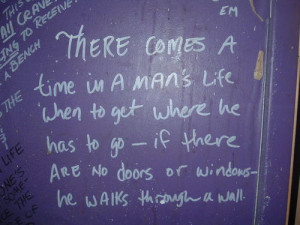 THIS
All CRAVE
NG TO RECEIVE
A BENCH
EM
THERE COMES A
time in A MAN's Life
when to get where he
has to go – if there
ARE NO doors or windows–
he WALKS through a wall.
THE
LIFE